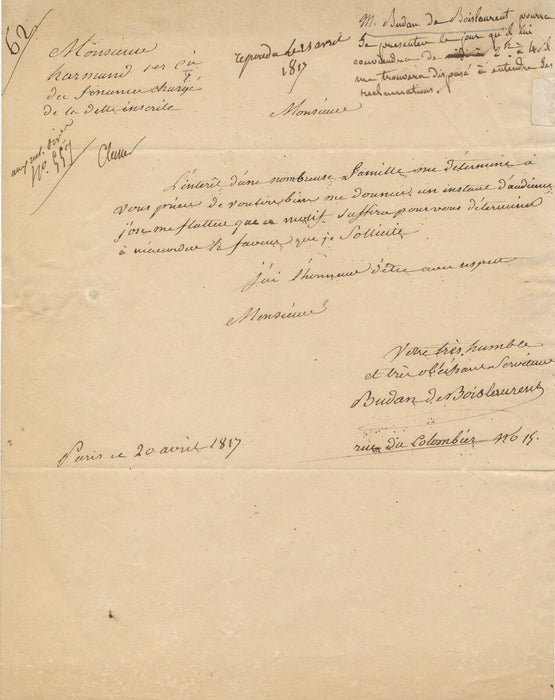 62
Monsieur
harmand
du finance chargé
de la dette inscrite
repondu le 23 avril
1817
M. Budan de Boislaurent pourra
se presenter le jour qu'il lui
conviendra de 2h à 4. il
me trouvera disposé à entendre ses
reclamations.
No. 557
Monsieur
L'intérêt d'une nombreuse famille me détermine à
vous prier de vouloir bien me donner un instant d'audience
j'ose me flatter que ce motif suffira pour vous déterminer
à m'accorder la faveur que je sollicite
j'ai l'honneur d'être avec respect
Monsieur
Votre très humble
et très obéissant Serviteur
Budan de Boislaurent
rue du Colombier No 15.
Paris ce 20 avril 1817